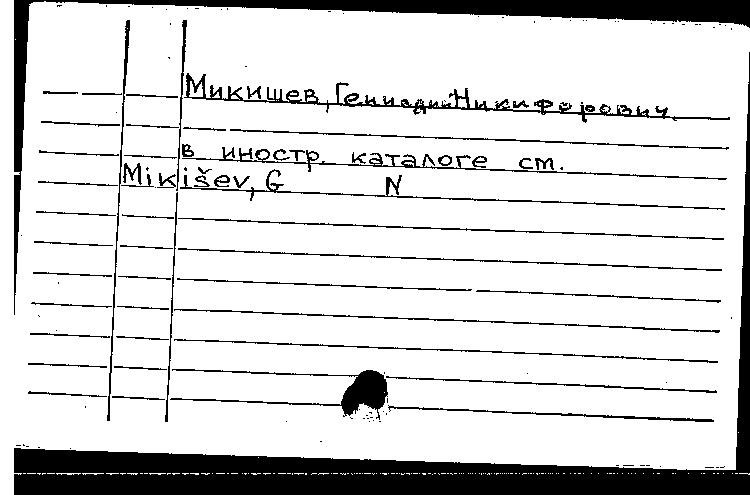 Микишев, Геннадий Никифорович.
в иностр. каталоге см.
Mikišev, G N